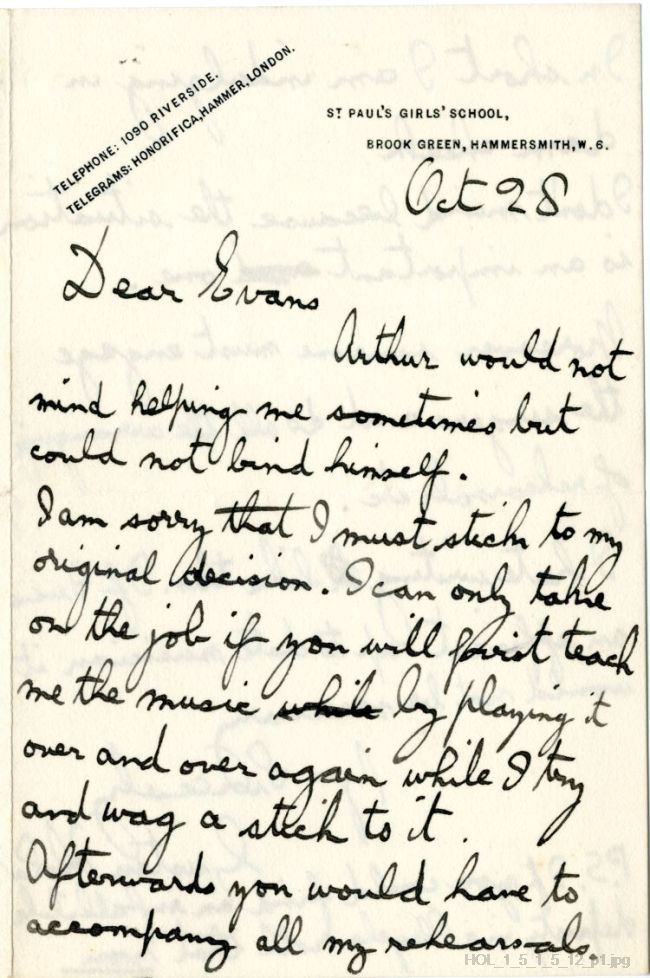 TELEPHONE: 1090 RIVERSIDE.
TELEGRAMS: HONORIFICA, HAMMER, LONDON.
ST PAUL'S GIRLS' SCHOOL,
BROOK GREEN, HAMMERSMITH, W. 6.
Oct 28
Dear Evans
Arthur would not
mind helping me sometimes but
could not bind himself.
I am sorry that I must stick to my
original decision. I can only take
on the job if you will first teach
me the music while by playing it
over and over again while I try
and wag a stick to it.
Afterwards you would have to
accompany all my rehearsals.
HOL_1_5_1_5_12_p1.jpg